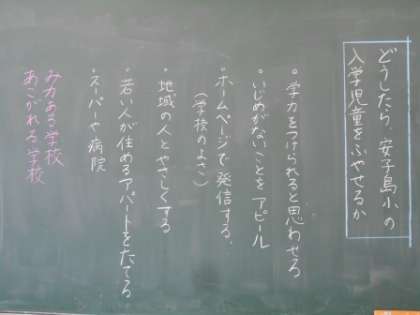 どうしたら、安子島小の
入学児童をふやせるか
・学力をつけられると思わせる
・いじめがないことをアピール
・ホームページで発信する。
(学校のよさ)
・地域の人とやさしくする
・若い人が住めるアパートをたてる。
・スーパーや病院
み力ある学校
あこがれる学校